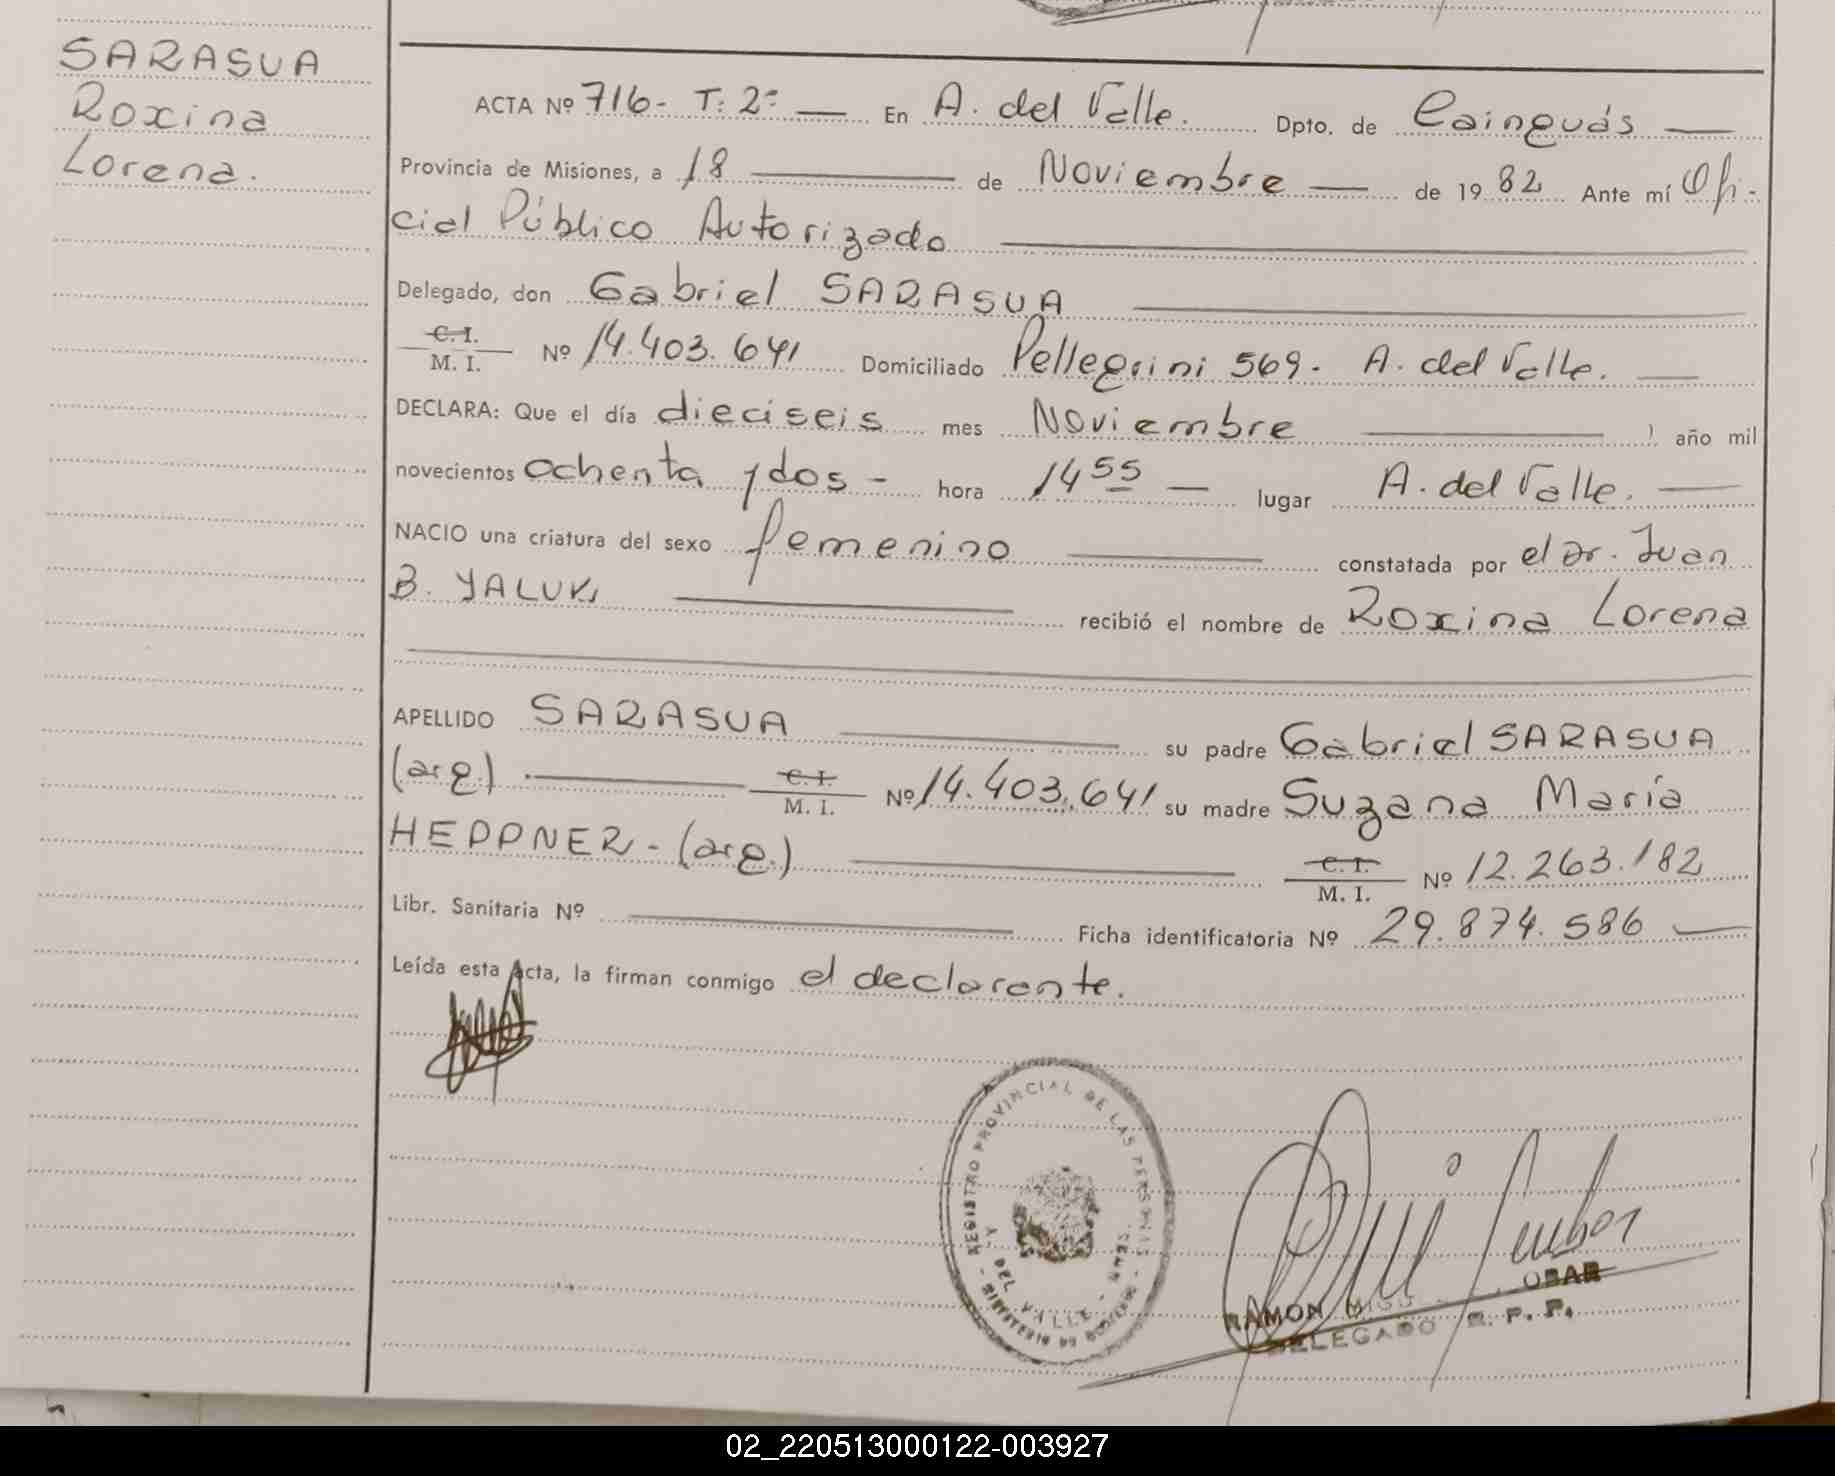 SARASUA
Roxina
Lorena.
ACTA Nº 716- T: 2º — En A. del Valle. Dpto. de Cainguás —
Provincia de Misiones, a 18 — de Noviembre — de 1982 Ante mí Ofi-
cial Público Autorizado —
Delegado, don Gabriel SARASUA —
C. I.
M. I. Nº 14.403.641 Domiciliado Pellegrini 569. A. del Valle. —
DECLARA: Que el día dieciseis mes Noviembre — ) año mil
novecientos ochenta y dos - hora 14 55 — lugar A. del Valle. —
NACIO una criatura del sexo femenino — constatada por el Dr. Juan
B. YALUK — recibió el nombre de Roxina Lorena
APELLIDO SARASUA — su padre Gabriel SARASUA
(arg.) — C. I.
M. I. Nº 14.403.641 su madre Suzana María
HEPPNER - (arg.) — C. I.
M. I. Nº 12.263.182
Libr. Sanitaria Nº — Ficha identificatoria Nº 29.874.586 —
Leída esta acta, la firman conmigo el declarante.
REGISTRO PROVINCIAL DE LAS PERSONAS
A. DEL VALLE
RAMON
DELEGADO R. P. P.
02_220513000122-003927